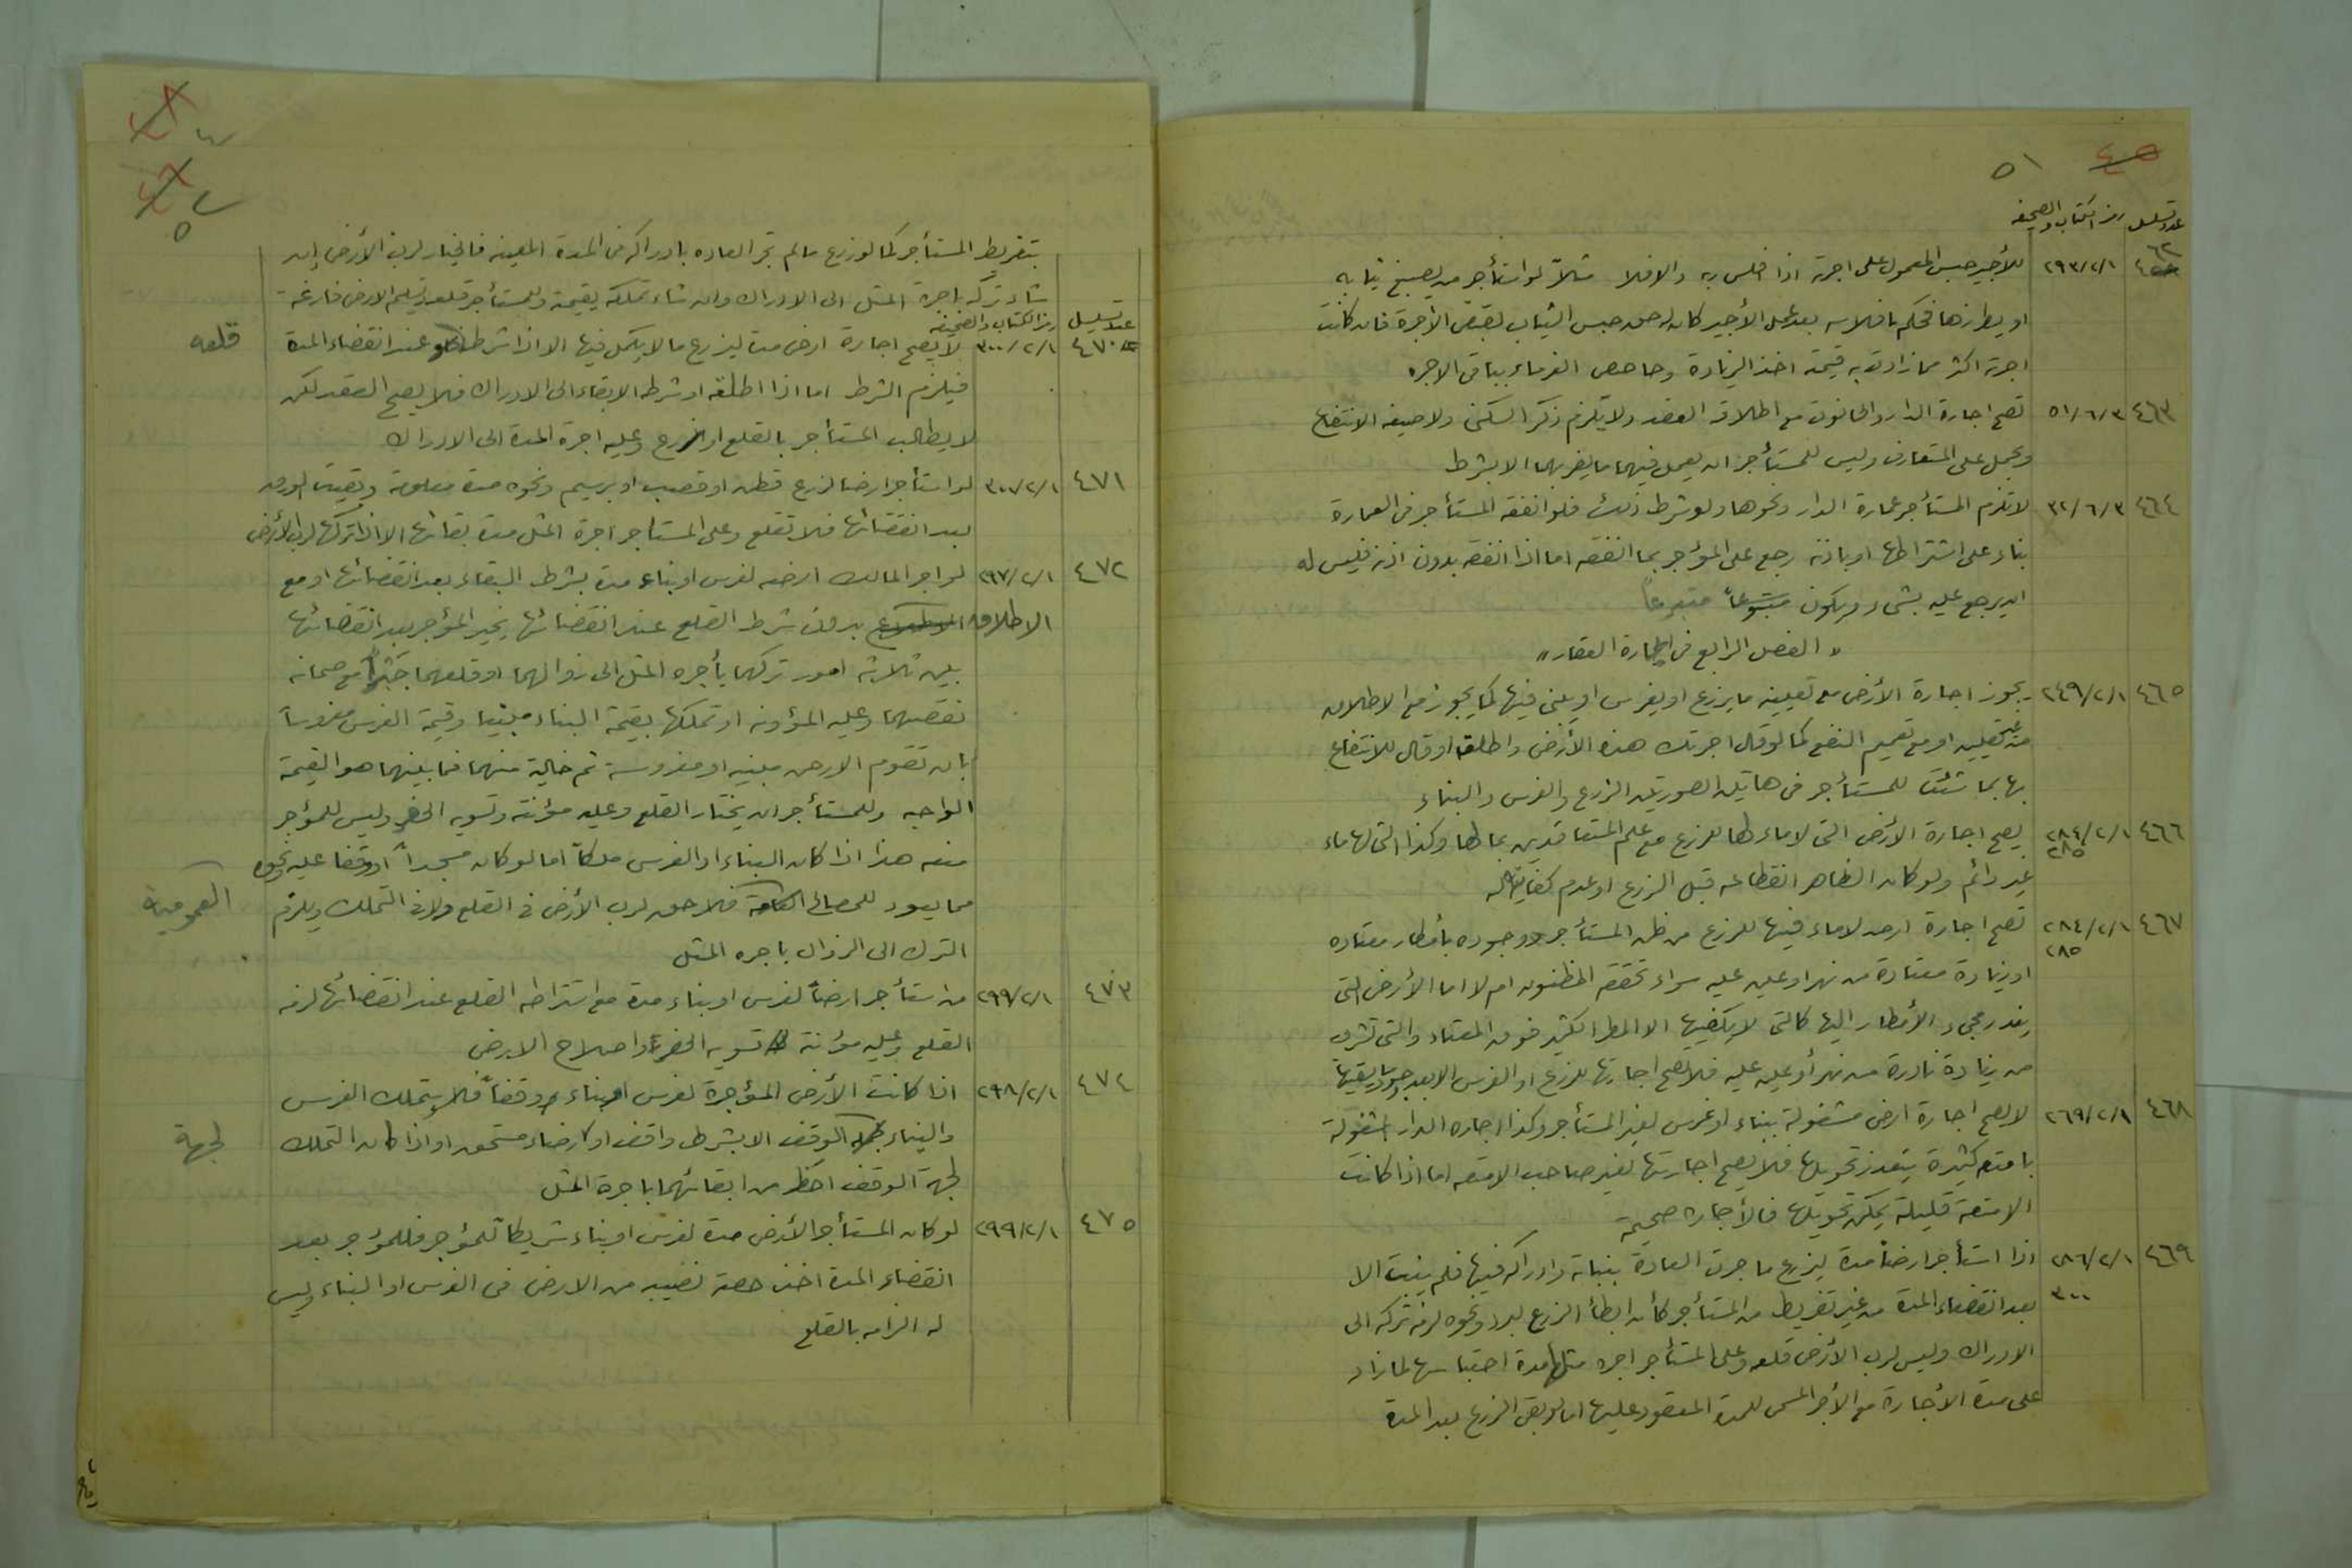 ٤٥ ٥١
عدد تسلسل رمز الكتاب والصحيفه
٤٦٢ ٢٩٣/٢/١ للأجير حبس المعمول على اجرته اذا افلس ربه والافلا مثلاً لو استأجر من يصبغ ثيابه
او يطرزها فحكم بافلاسه بعد عمل الأجير كان له حق حبس الثياب لقبض الأجرة فان كانت
اجرته اكثر مما زادت به قيمته اخذ الزيادة وحاصص الغرماء بباقى الاجره
٤٦٣ ٥١/٦/٣ تصح اجارة الدار والحانوت مع اطلاق العقد ولا يلزم ذكر السكنى ولا صيغة الانتفاع
ويحمل على المتعارف وليس للمستأجر ان يعمل فيهما ما يضر بهما الا بشرط
٤٦٤ ٣٢/٦/٣ لا تلزم المستأجر عمارة الدار ونحوها ولو شرط ذلك فلو انفقه المستأجر فى العمارة
بناء على اشتراطها او باذنه رجع على المؤجر بما انفقه اما اذا انفقه بدون اذنه فليس له
ان يرجع عليه بشىء ويكون متبرعاً
« الفصل الرابع فى اجارة العقار »
٤٦٥ ٢٤٩/٢/١ يجوز اجارة الأرض مع تعيين ما يزرع او يغرس او يبنى فيها كما يجوز مع الاطلاق
من غير تعيين او مع تعميم النفع كما لو قال اجرتك هذه الأرض واطلق او قال للانتفاع
بها بما شئت للمستأجر فى هاتين الصورتين الزرع والغرس والبناء
٤٦٦ ٢٨٤/٢/١ ٢٨٥ يصح اجارة الأرض التى لا ماء لها للزرع مع علم المتعاقدين بحالها وكذا التى لها ماء
غير دائم ولو كان الظاهر انقطاعه قبل الزرع او عدم كفايته له
٤٦٧ ٢٨٤/٢/١ تصح اجارة ارض لا ماء فيها للزرع من ظن المستأجر وجوده بأمطار معتاده
٢٨٥ او زيادة معتادة من نهر او عين عليه سواء تحقق المظنون ام لا اما الأرض التى
يندر مجىء الأمطار اليها كالتى لا يكفيها الا المطر الكثير فوق المعتاد والتى تشرب
من زيادة نادرة من نهر أو عين عليه فلا تصح اجارتها للزرع او الغرس الا بعد وجود ما يسقيها
٤٦٨ ٢٦٩/٢/١ لا يصح اجارة ارض مشغولة ببناء او غرس لغير المستأجر وكذا اجاره الدار المشغولة
بامتعه كثيرة يتعذر تحويلها فلا يصح اجارتها لغير صاحب الامتعه اما اذا كانت
الامتعة قليلة يمكن تحويلها فالأجاره صحيحة
٤٦٩ ٢٨٦/٢/١ اذا استأجر ارضاً مدة ليزرع ما جرت العادة بنباته وادراكه فيها فلم ينبت الا
٣٠٠ بعد انقضاء المدة من غير تفريط من المستأجر كأن ابطأ الزرع لبرد ونحوه لزمه تركه الى
الادراك وليس لرب الأرض قلعه وعلى المستأجر اجره مثلها مدة احتباسها لما زاد
على مدة الأجارة مع الأجر المسمى للمدة المعقود عليها اما لو بقى الزرع بعد المدة
بتفريط المستأجر كما لو زرع ما لم تجر العاده بادراكه فى المدة المعينه فالخيار لرب الأرض إن
شاء تركه باجرة المثل الى الادراك وان شاء تملكه بقيمته وللمستأجر قلعه وتسليم الارض فارغة
عدد تسلسل رمز الكتاب والصحيفه
٤٧٠ ٣٠٠/٢/١ لا يصح اجارة ارض مدة ليزرع ما لا يكمل فيها الا اذا شرط قلعه عند انقضاء المدة
فيلزم الشرط اما اذا اطلقه او شرط الابقاء الى الادراك فلا يصح العقد لكن
لا يطالب المستأجر بالقلع او الزرع وعليه اجرة المدة الى الادراك
٤٧١ ٣٠٧/٢/١ لو استأجر ارضا لزرع قطن او قصب او برسيم ونحوه مدة معلومة وبقيت العروق
بعد انقضائها فلا تقلع وعلى المستأجر اجرة المثل مدة بقائها الا اذا تركها لرب الأرض
٤٧٢ ٢٩٧/٢/١ لو اجر المالك ارضه لغرس او بناء مدة بشرط البقاء بعد انقضائها او مع
الاطلاق بدون شرط القلع عند انقضائها يخير المؤجر بعد انقضائها
بين ثلاثة امور تركهما بأجره المثل الى زوالهما او قلعهما جبراً مع ضمانه
نقصهما وعليه المؤونه او تملكها بقيمة البناء مبنيا وقيمة الغرس مغروساً
بان تقوم الارض مبنيه او مغروسة ثم خالية منهما فما بينهما هو القيمة
الواجبه وللمستأجر ان يختار القلع وعليه مؤنته وتسويه الحفر وليس للمؤجر
منعه هذا اذا كان البناء او الغرس ملكاً اما لو كان مسجداً او وقفا عليه ونحوه
مما يعود للمصالح العمومية فلا حق لرب الأرض فى القلع ولا فى التملك ويلزم
الترك الى الزوال باجره المثل
٤٧٣ ٢٩٩/٢/١ من استأجر ارضاً لغرس او بناء مدة مع اشتراط القلع عند انقضائها لزمه
القلع وعليه مؤنة تسويه الحفرة واصلاح الارض
٤٧٤ ٢٩٨/٢/١ اذا كانت الأرض المؤجرة لغرس او بناء وقفاً فلا يتملك الغرس
والبناء لجهة الوقف الا بشرط واقف او رضاء مستحق او اذا كان التملك
لجهة الوقف احظ من ابقائهما باجرة المثل
٤٧٥ ٢٩٩/٢/١ لو كان المستأجر الأرض مدة لغرس او بناء شريكاً للمؤجر فللمؤجر بعد
انقضاء المدة اخذ حصة نصيبه من الارض فى الغرس او البناء وليس
له الزامه بالقلع